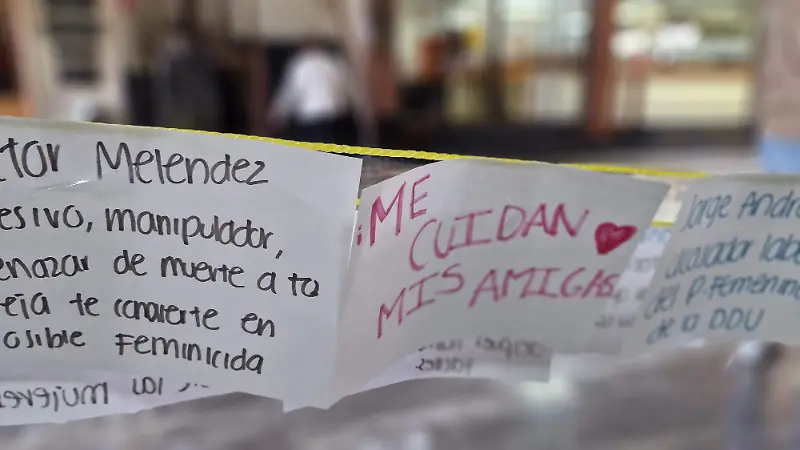 tor Melendez
esivo, manipulador,
enazar de muerte a tu
eja te convierte en
osible Feminicida
¡ME
CUIDAN
MIS AMIGAS
Jorge Andra
del P. Femenin
de la DDU